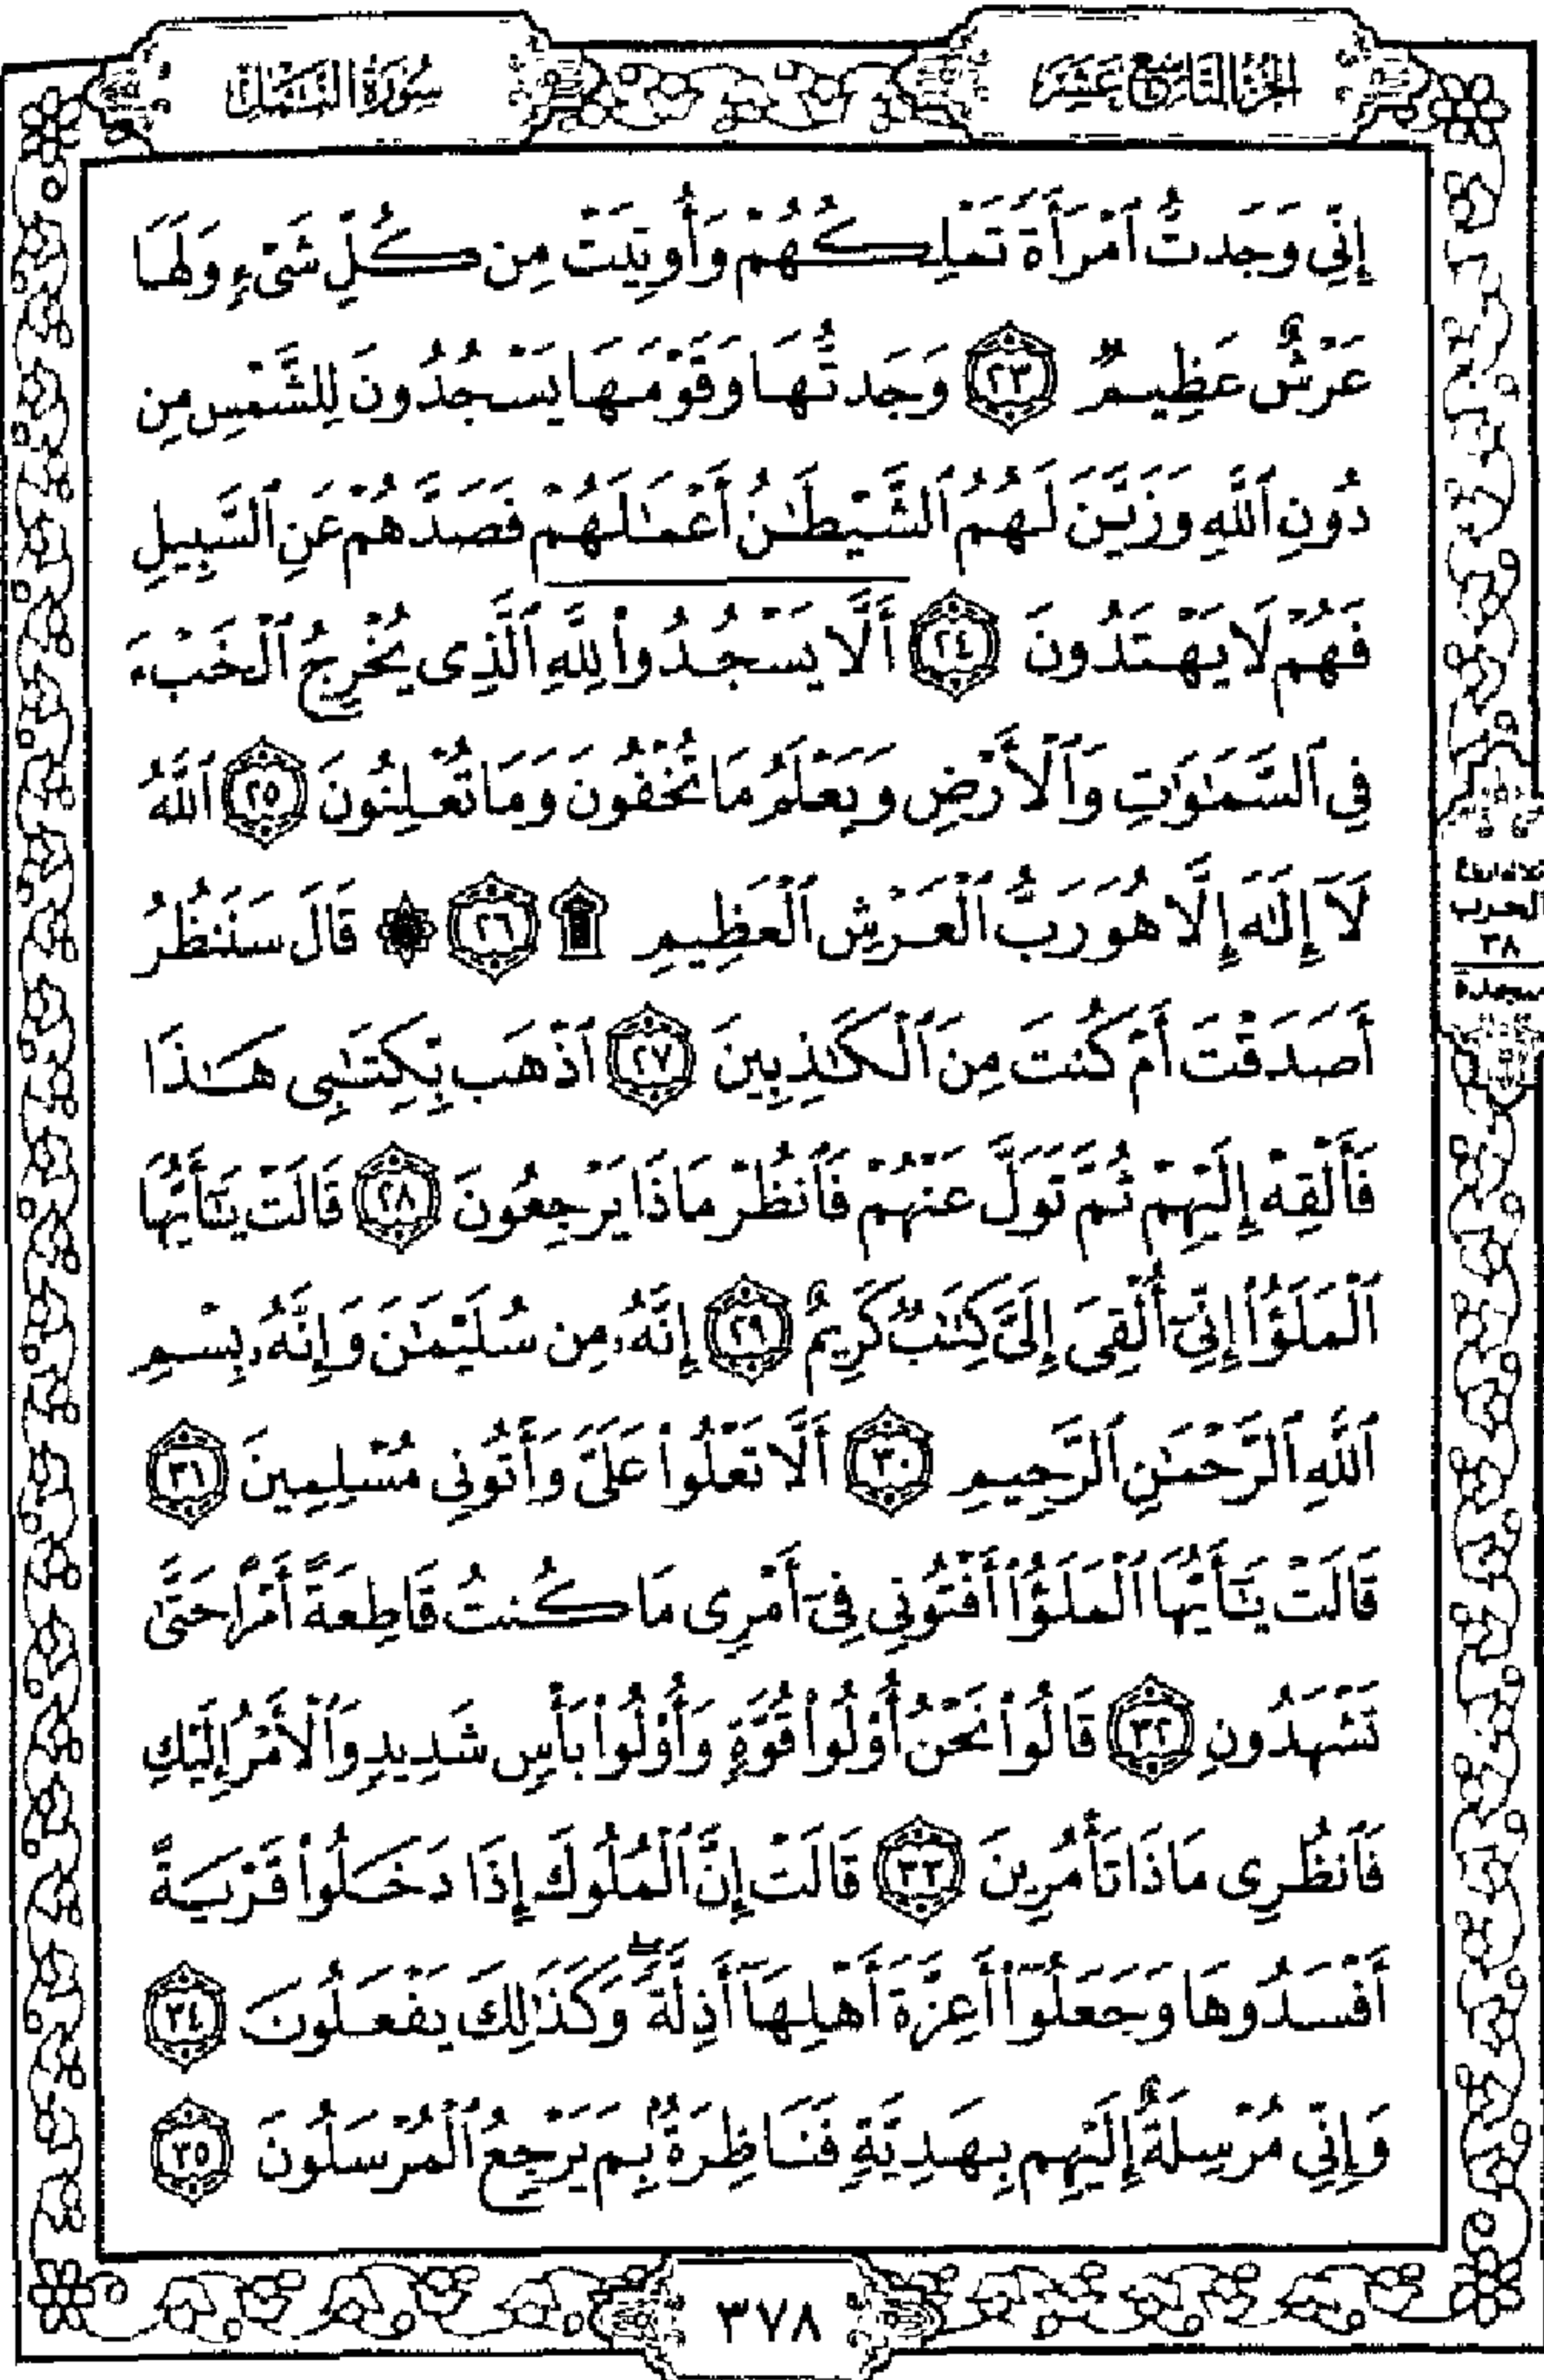 الجزء التاسع عشر
سورة النمل
إِنِّي وَجَدتُّ ٱمْرَأَةً تَمْلِكُهُمْ وَأُوتِيَتْ مِن كُلِّ شَىْءٍ وَلَهَا
عَرْشٌ عَظِيمٌ ٢٣ وَجَدتُّهَا وَقَوْمَهَا يَسْجُدُونَ لِلشَّمْسِ مِن
دُونِ ٱللَّهِ وَزَيَّنَ لَهُمُ ٱلشَّيْطَٰنُ أَعْمَٰلَهُمْ فَصَدَّهُمْ عَنِ ٱلسَّبِيلِ
فَهُمْ لَا يَهْتَدُونَ ٢٤ أَلَّا يَسْجُدُوا۟ لِلَّهِ ٱلَّذِى يُخْرِجُ ٱلْخَبْءَ
فِى ٱلسَّمَٰوَٰتِ وَٱلْأَرْضِ وَيَعْلَمُ مَا تُخْفُونَ وَمَا تُعْلِنُونَ ٢٥ ٱللَّهُ
لَآ إِلَٰهَ إِلَّا هُوَ رَبُّ ٱلْعَرْشِ ٱلْعَظِيمِ ۩ ٢٦ ۞ قَالَ سَنَنظُرُ
أَصَدَقْتَ أَمْ كُنتَ مِنَ ٱلْكَٰذِبِينَ ٢٧ ٱذْهَب بِّكِتَٰبِى هَٰذَا
فَأَلْقِهْ إِلَيْهِمْ ثُمَّ تَوَلَّ عَنْهُمْ فَٱنظُرْ مَاذَا يَرْجِعُونَ ٢٨ قَالَتْ يَٰٓأَيُّهَا
ٱلْمَلَؤُا۟ إِنِّىٓ أُلْقِىَ إِلَىَّ كِتَٰبٌ كَرِيمٌ ٢٩ إِنَّهُۥ مِن سُلَيْمَٰنَ وَإِنَّهُۥ بِسْمِ
ٱللَّهِ ٱلرَّحْمَٰنِ ٱلرَّحِيمِ ٣٠ أَلَّا تَعْلُوا۟ عَلَىَّ وَأْتُونِى مُسْلِمِينَ ٣١
قَالَتْ يَٰٓأَيُّهَا ٱلْمَلَؤُا۟ أَفْتُونِى فِىٓ أَمْرِى مَا كُنتُ قَاطِعَةً أَمْرًا حَتَّىٰ
تَشْهَدُونِ ٣٢ قَالُوا۟ نَحْنُ أُو۟لُوا۟ قُوَّةٍ وَأُو۟لُوا۟ بَأْسٍ شَدِيدٍ وَٱلْأَمْرُ إِلَيْكِ
فَٱنظُرِى مَاذَا تَأْمُرِينَ ٣٣ قَالَتْ إِنَّ ٱلْمُلُوكَ إِذَا دَخَلُوا۟ قَرْيَةً
أَفْسَدُوهَا وَجَعَلُوٓا۟ أَعِزَّةَ أَهْلِهَآ أَذِلَّةً ۖ وَكَذَٰلِكَ يَفْعَلُونَ ٣٤
وَإِنِّى مُرْسِلَةٌ إِلَيْهِم بِهَدِيَّةٍ فَنَاظِرَةٌۢ بِمَ يَرْجِعُ ٱلْمُرْسَلُونَ ٣٥
الحزب
٣٨
سجدة
٣٧٨